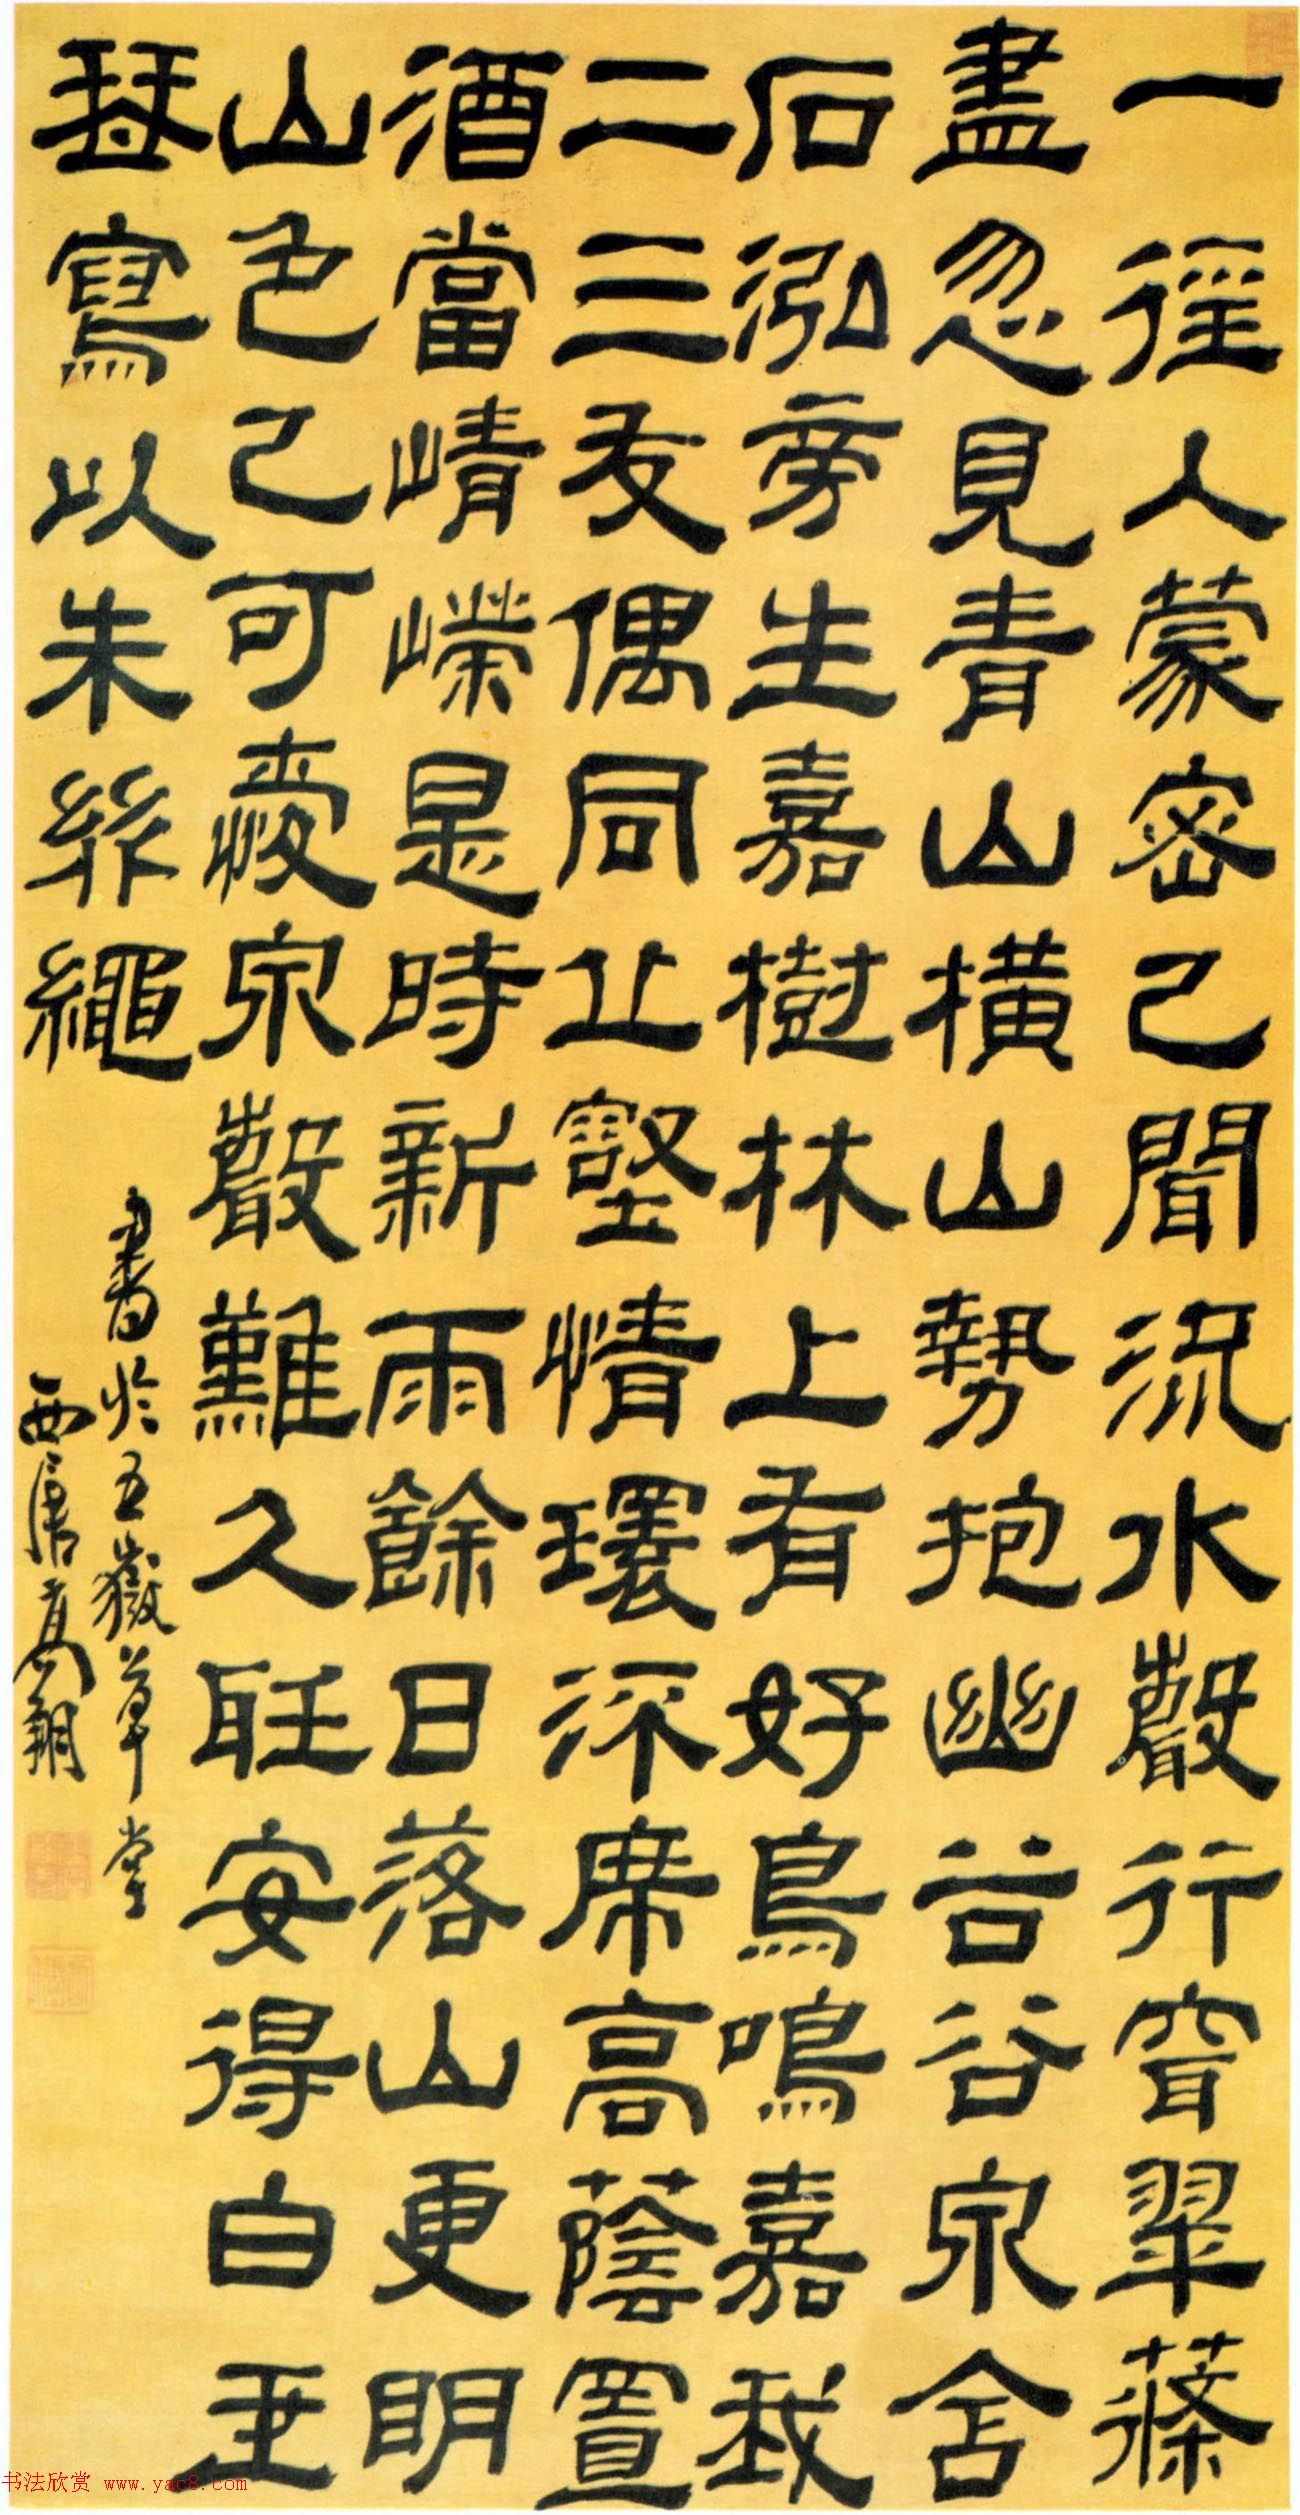 一徑入蒙密已聞流水聲行窅翠蓧
盡忽見青山橫山勢抱幽谷谷泉含
石泓旁生嘉樹林上有好鳥鳴嘉我
二三友偶同止壑情環深席高蔭置
酒當崝嶸是時新雨餘日落山更明
山色已可愛泉聲難久聽安得白玉
琴寫以朱絲繩
書於五嶽草堂
西唐高翔
书法欣赏 www.yac8.com